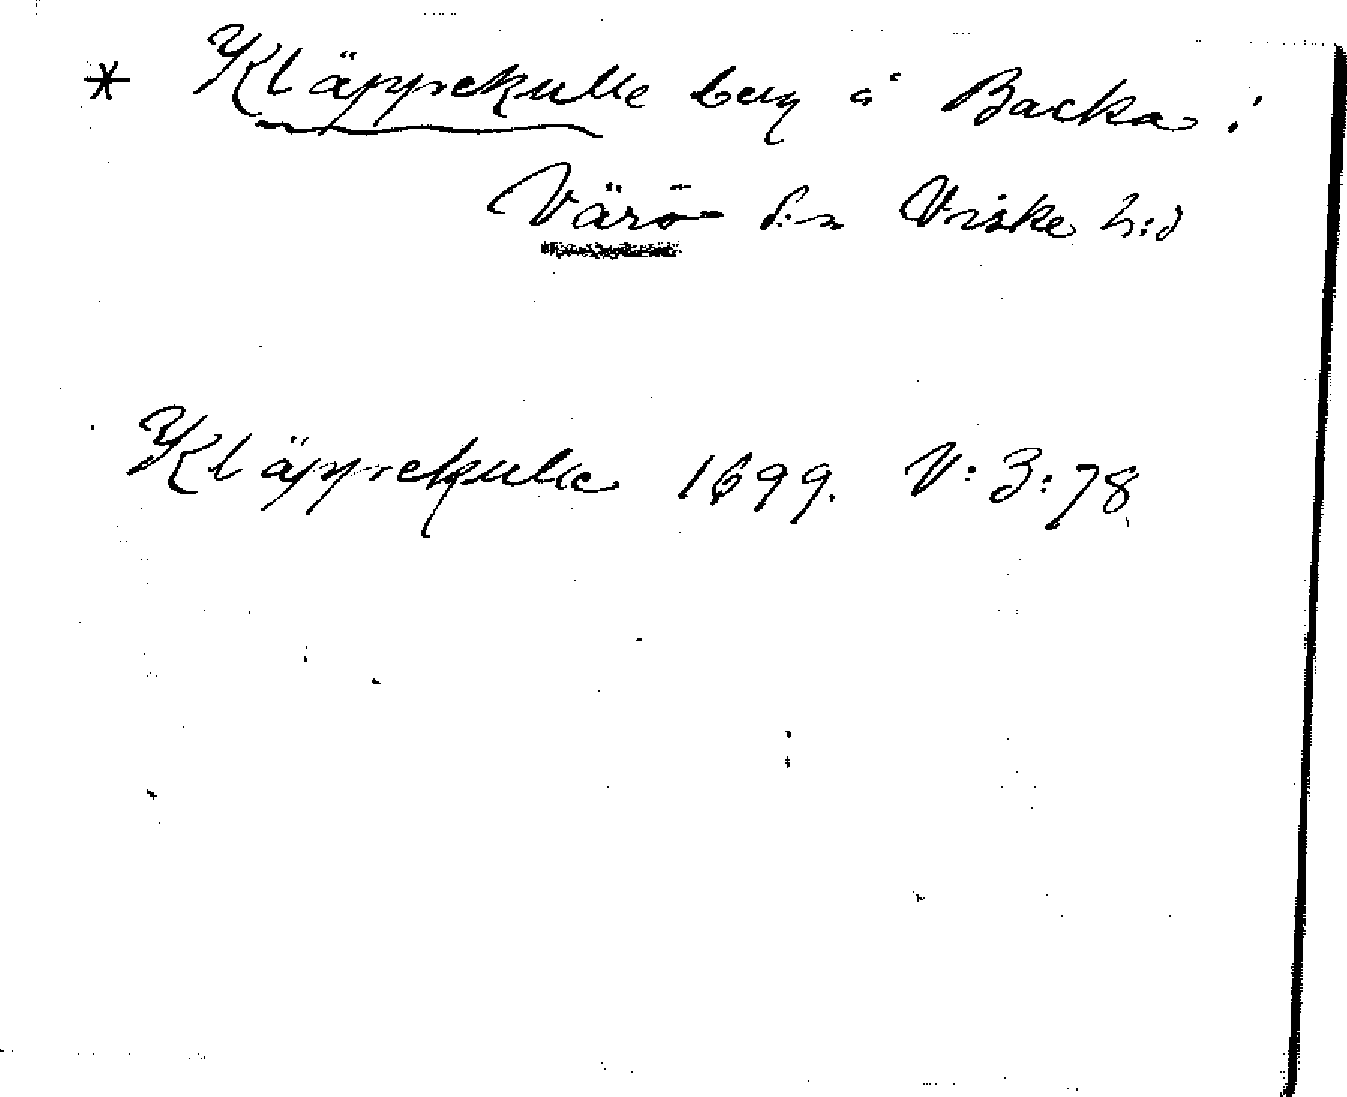 * Kläppekulle berg å Backa i
Värö s:n Viske h:d
Kläppekulle 1699. V:3:78